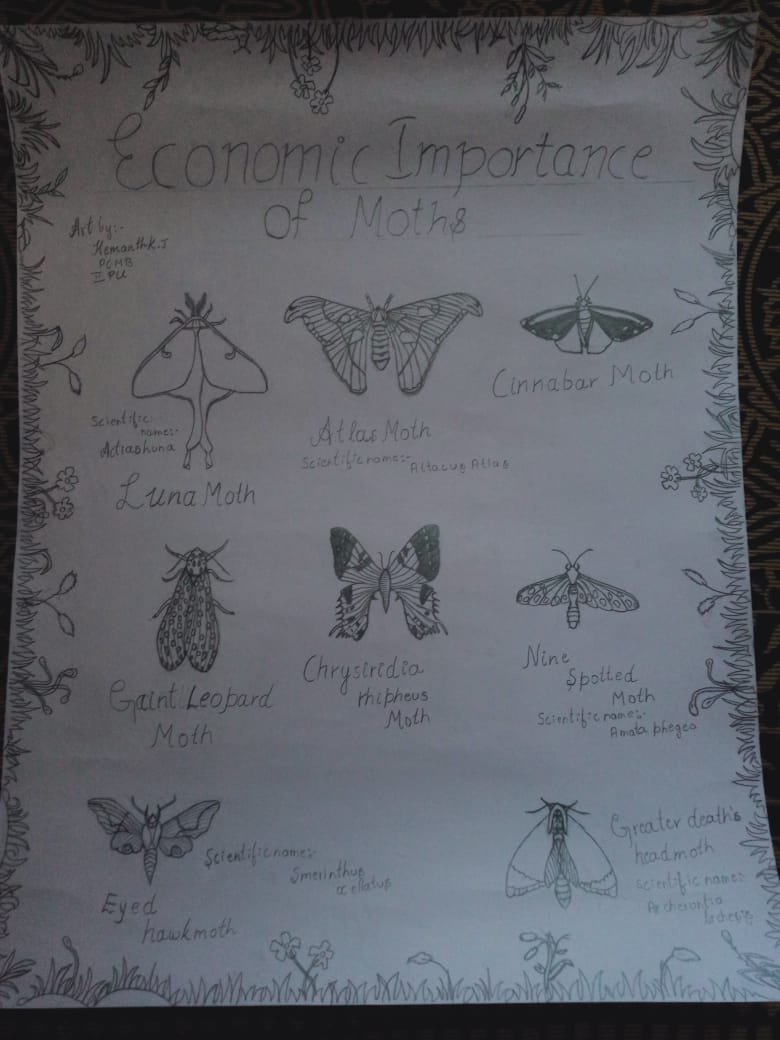 Economic Importance
of Moths
Art by:-
Hemanth K.J
PCMB
II PU
Scientific
name:-
Actiasluna
Luna Moth
Atlas Moth
Scientific name:- Attacus Atlas
Cinnabar Moth
Gaint Leopard
Moth
Chrysiridia
rhipheus
Moth
Nine
Spotted
Moth
Scientific name:-
Amata phegea
Scientific name:-
Smerinthus
ocellatus
Eyed
hawkmoth
Greater death's
headmoth
Scientific name:-
Archerontia
lachesis